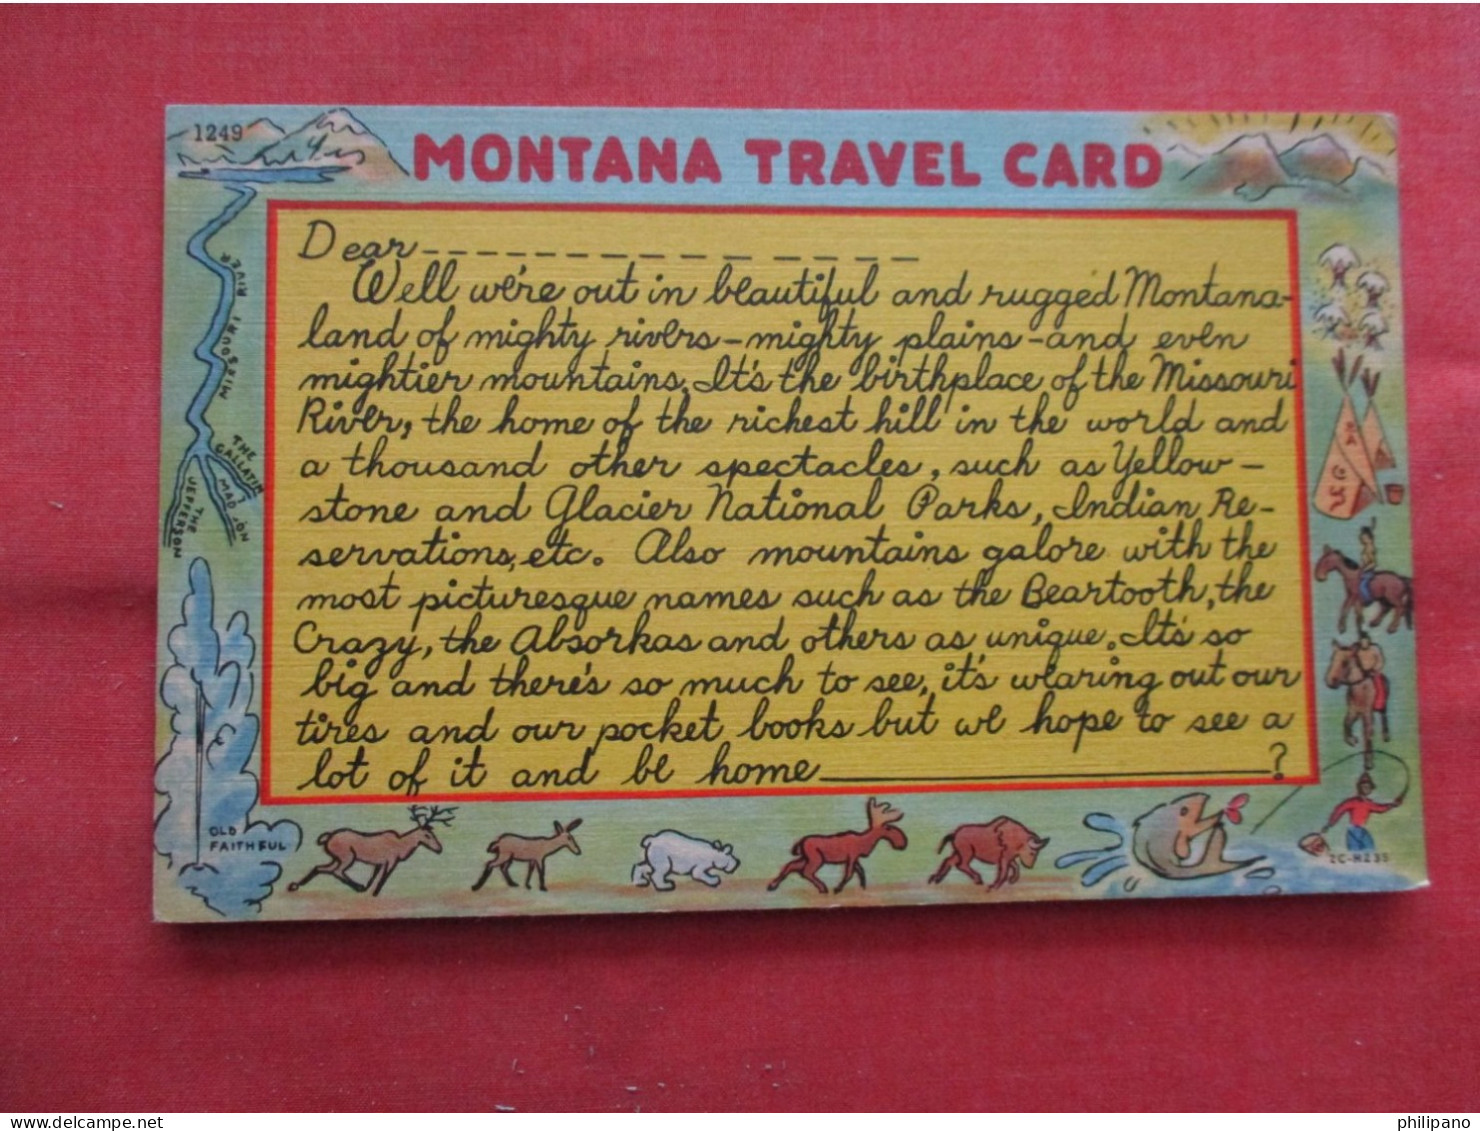 1249
MONTANA TRAVEL CARD
Dear _ _ _ _ _ _ _ _ _ _ _ _ _ _
Well we're out in beautiful and rugged Montana-
land of mighty rivers - mighty plains - and even
mightier mountains. It's the birthplace of the Missouri
River, the home of the richest hill in the world and
a thousand other spectacles, such as Yellow-
stone and Glacier National Parks, Indian Re-
servations, etc. Also mountains galore with the
most picturesque names such as the Beartooth, the
Crazy, the Absorkas and others as unique. It's so
big and there's so much to see, it's wearing out our
tires and our pocket books but we hope to see a
lot of it and be home ______________?
MISSOURI RIVER
THE GALLATIN
MADISON
THE JEFFERSON
OLD FAITHFUL
2C-H235
philipano